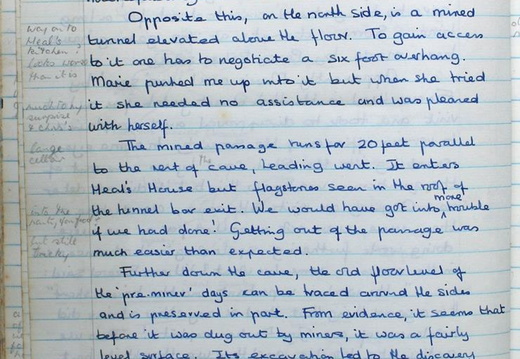 Opposite this, on the north side, is a mined
tunnel elevated above the floor. To gain access
to it one has to negotiate a six foot overhang.
Marie pushed me up into it but when she tried
it she needed no assistance and was pleased
with herself.
The mined passage runs for 20 feet parallel
to the rest of The cave, heading west. It enters
Heal's House but flagstones seen in the roof of
the tunnel bar exit. We would have got into more trouble
if we had done! Getting out of the passage was
much easier than expected.
Further down the cave, the old floor level of
the 'pre-miner' days can be traced around the sides
and is preserved in part. From evidence, it seems that
before it was dug out by miners, it was a fairly
level surface. Its excavation led to the discovery
way on to
Heal's
kitchen!
looks worse
than it is
much to my
surprise
& Chris's
large
cellar
into the
but still